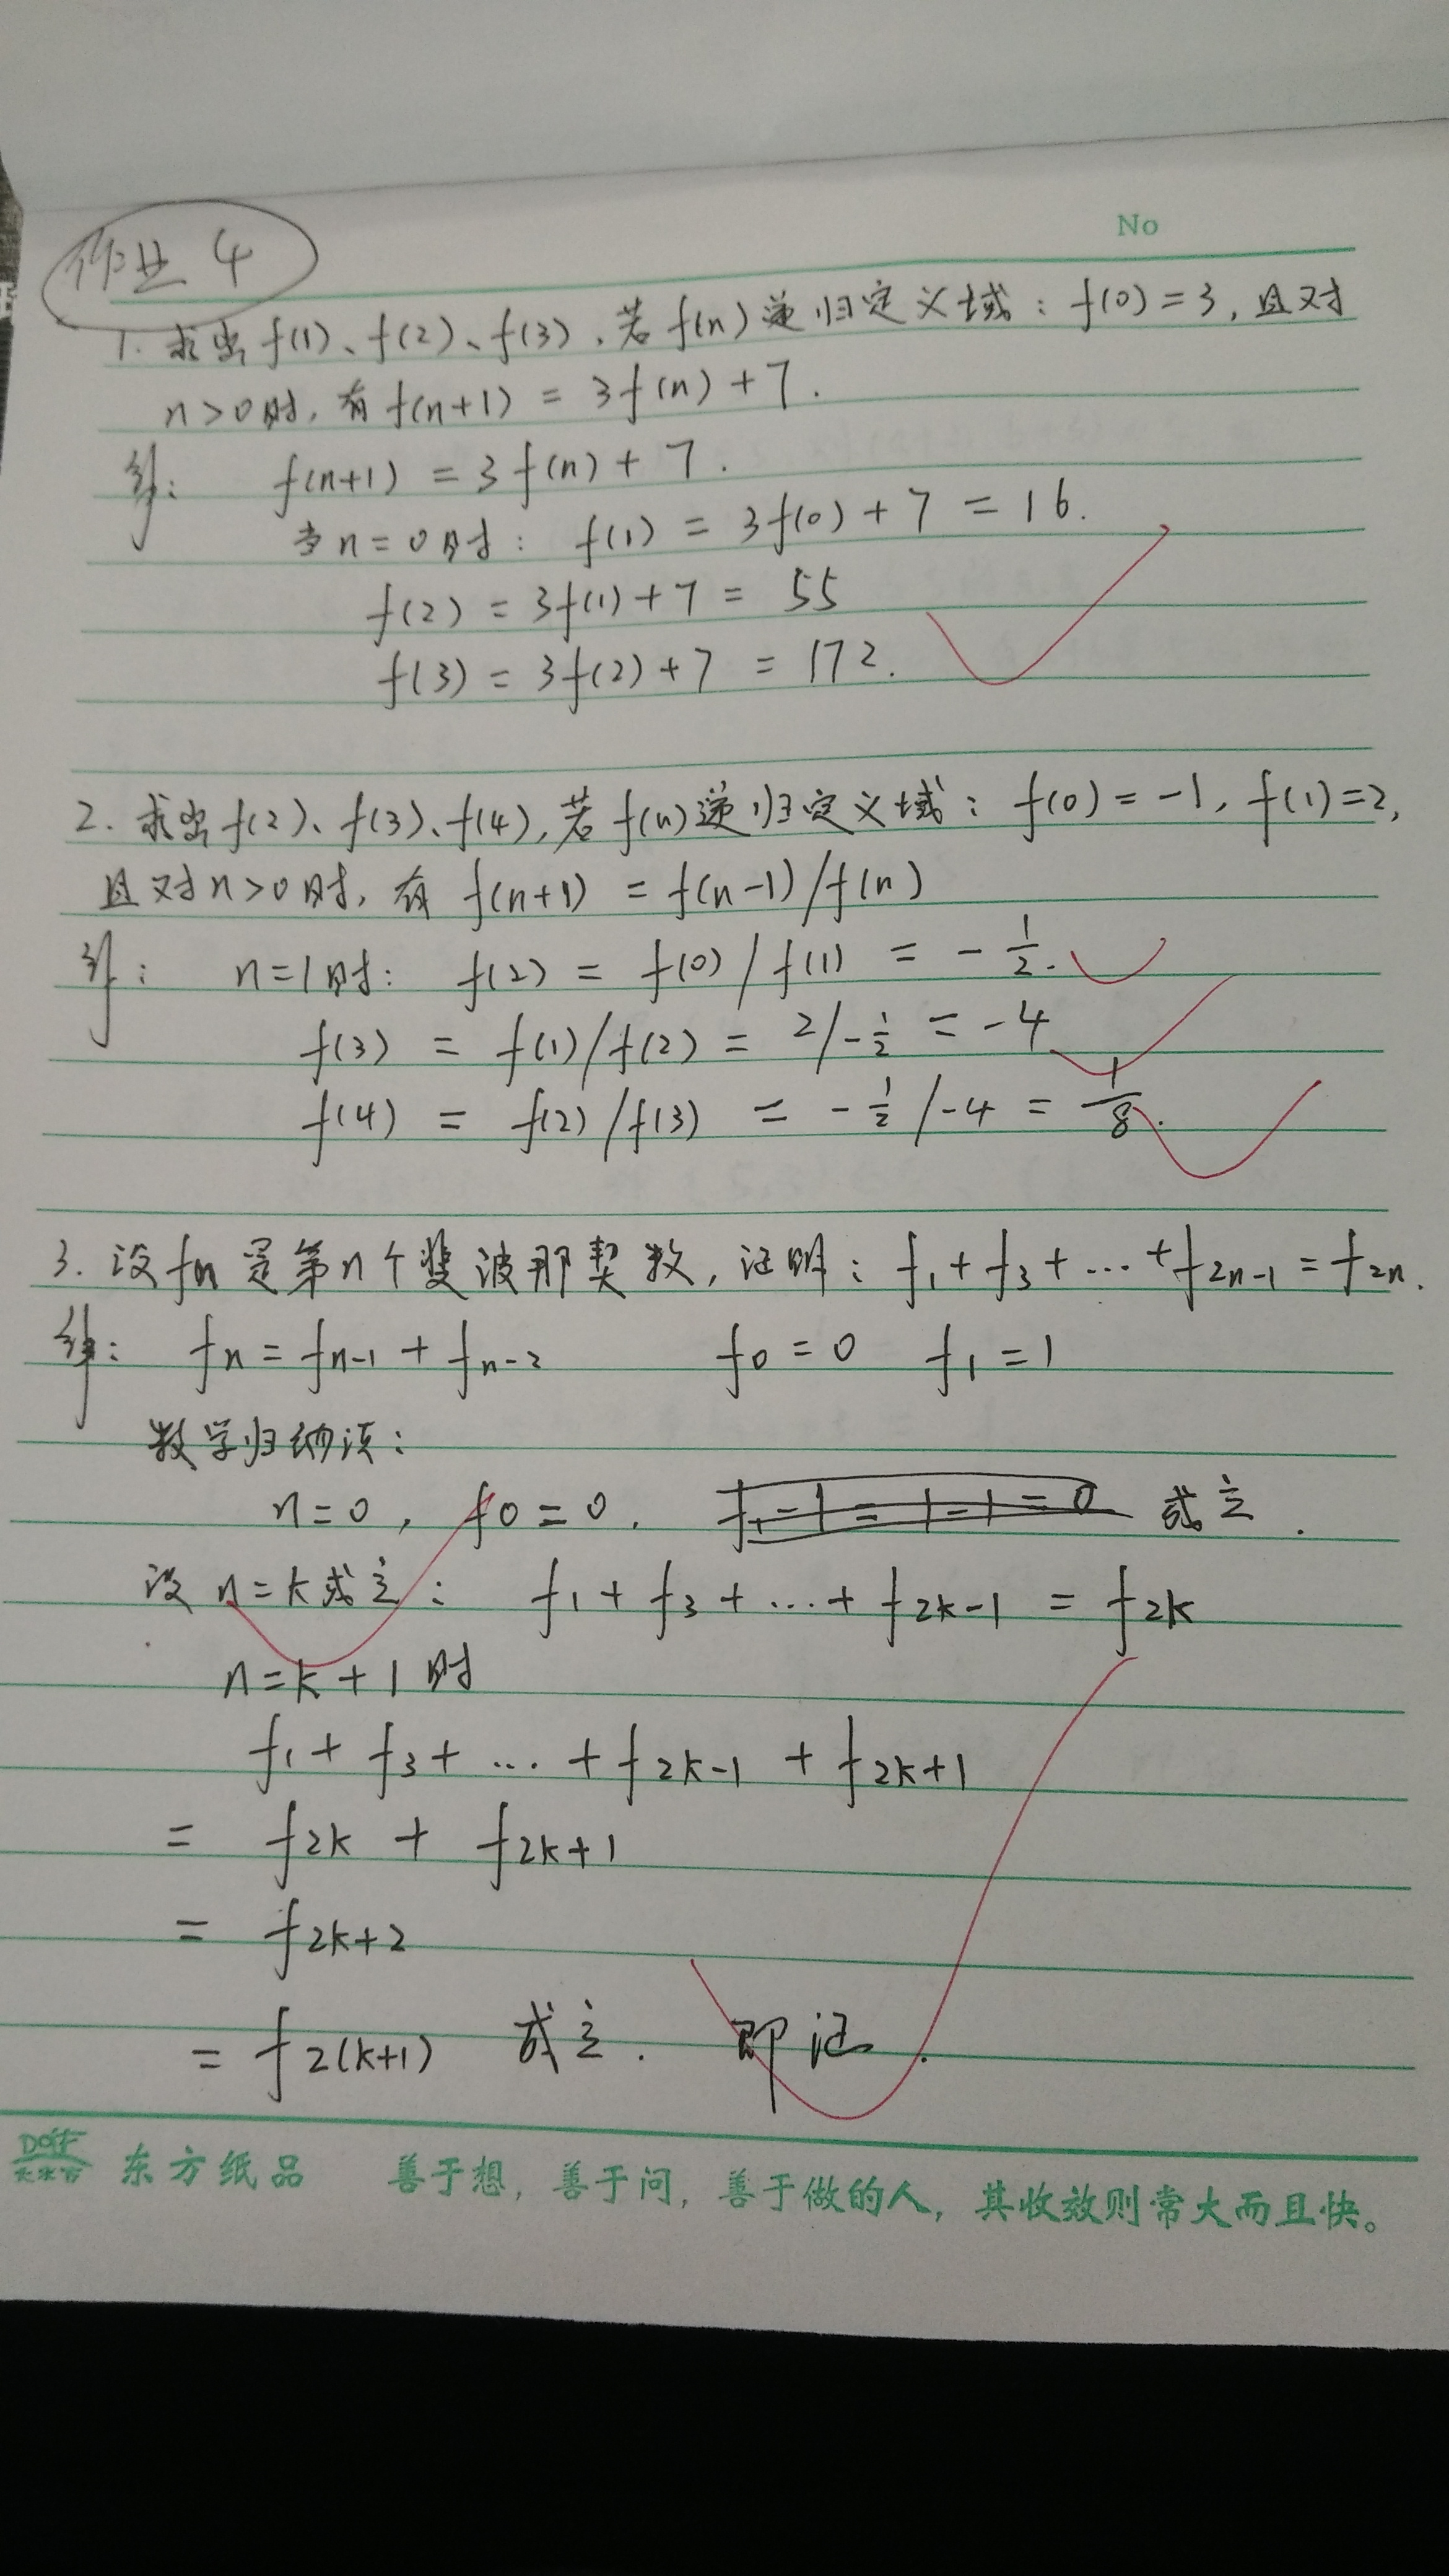 No
作业 4
1. 求出 f(1)、f(2)、f(3),若 f(n) 递归定义域:f(0)=3,且对
n>0时,有 f(n+1) = 3f(n)+7.
解: f(n+1) = 3f(n)+7.
当n=0时: f(1) = 3f(0)+7 = 16.
f(2) = 3f(1)+7 = 55
f(3) = 3f(2)+7 = 172.
2. 求出f(2)、f(3)、f(4),若 f(n)递归定义域:f(0)=-1, f(1)=2,
且对n>0时,有 f(n+1) = f(n-1)/f(n)
解: n=1时: f(2) = f(0)/f(1) = -1/2.
f(3) = f(1)/f(2) = 2/-1/2 = -4
f(4) = f(2)/f(3) = -1/2/-4 = 1/8.
3. 设fn是第n个斐波那契数,证明:f1+f3+…+f2n-1=f2n.
解: fn=fn-1+fn-2 f0=0 f1=1
数学归纳法:
n=0, f0=0. 成立.
设 n=k成立: f1+f3+…+f2k-1 = f2k
n=k+1时
f1+f3+…+f2k-1+f2k+1
= f2k + f2k+1
= f2k+2
= f2(k+1) 成立. 即证.
东方纸品 善于想,善于问,善于做的人,其收效则常大而且快。